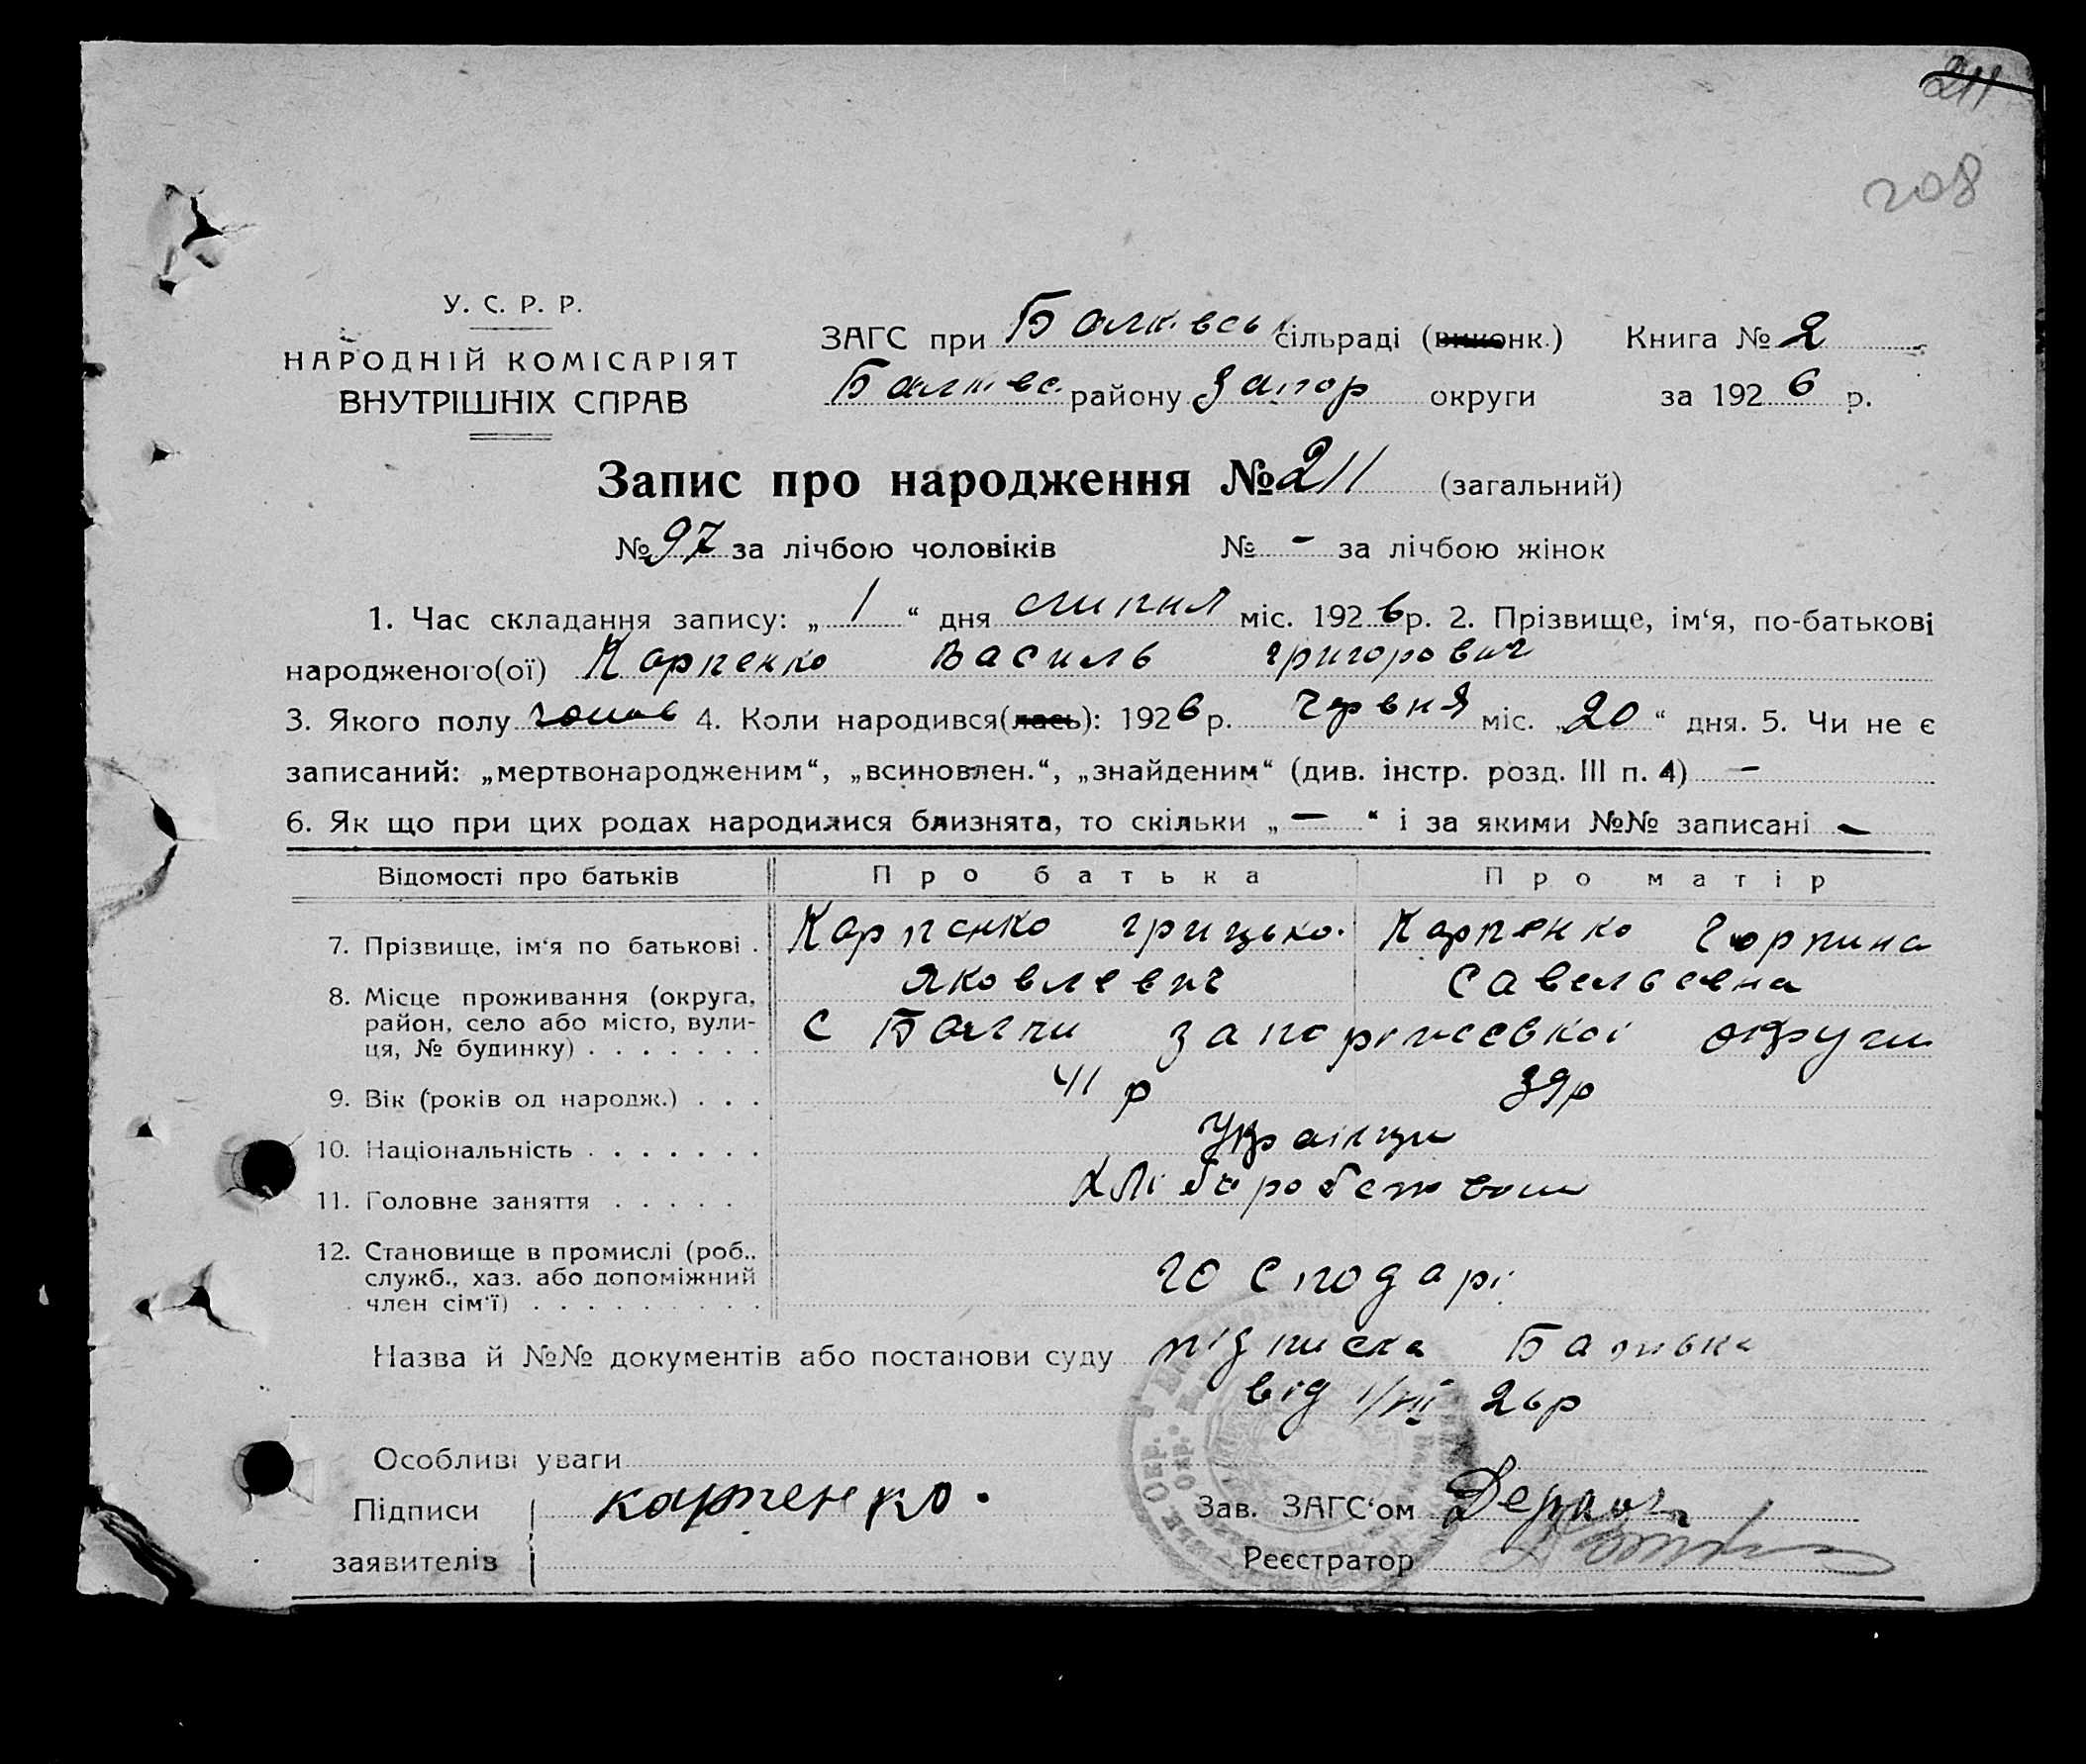 211
208
У. С. Р. Р.
НАРОДНІЙ КОМІСАРІЯТ
ВНУТРІШНІХ СПРАВ
ЗАГС при Балківсь сільраді (виконк.) Книга № 2
Балківс. району Запор округи за 1926 р.
Запис про народження № 211 (загальний)
№ 97 за лічбою чоловіків № - за лічбою жінок
1. Час складання запису: „ 1 “ дня липня міс. 1926 р. 2. Прізвище, ім‘я, по-батькові
народженого(ої) Карпенко Василь Григорович
3. Якого полу 4. Коли народився(лась): 1926 р. Червня міс. „20“ дня. 5. Чи не є
записаний: „мертвонародженим“, „всиновлен.“, „знайденим“ (див. інстр. розд. III п. 4) -
6. Як що при цих родах народилися близнята, то скільки „ — “ і за якими №№ записані -
Відомості про батьків Про батька Про матір
7. Прізвище, ім‘я по батькові . Карпенко Грицько. Карпенко Горпина
Яковлевич Савельевна
8. Місце проживання (округа,
район, село або місто, вули-
ця, № будинку) . . . . . . . с Балки Запоріжської округи
9. Вік (років од народж.) . . . 41 р 39 р
10. Національність . . . . . . . Українци
11. Головне заняття . . . . .
12. Становище в промислі (роб.,
служб., хаз. або допоміжний
член сім‘ї) . . . . . . . . . господарі
Назва й №№ документів або постанови суду підписка
від 1/VII 26 р
Особливі уваги
Підписи карпенко. Зав. ЗАГС‘ом
заявителів Реєстратор